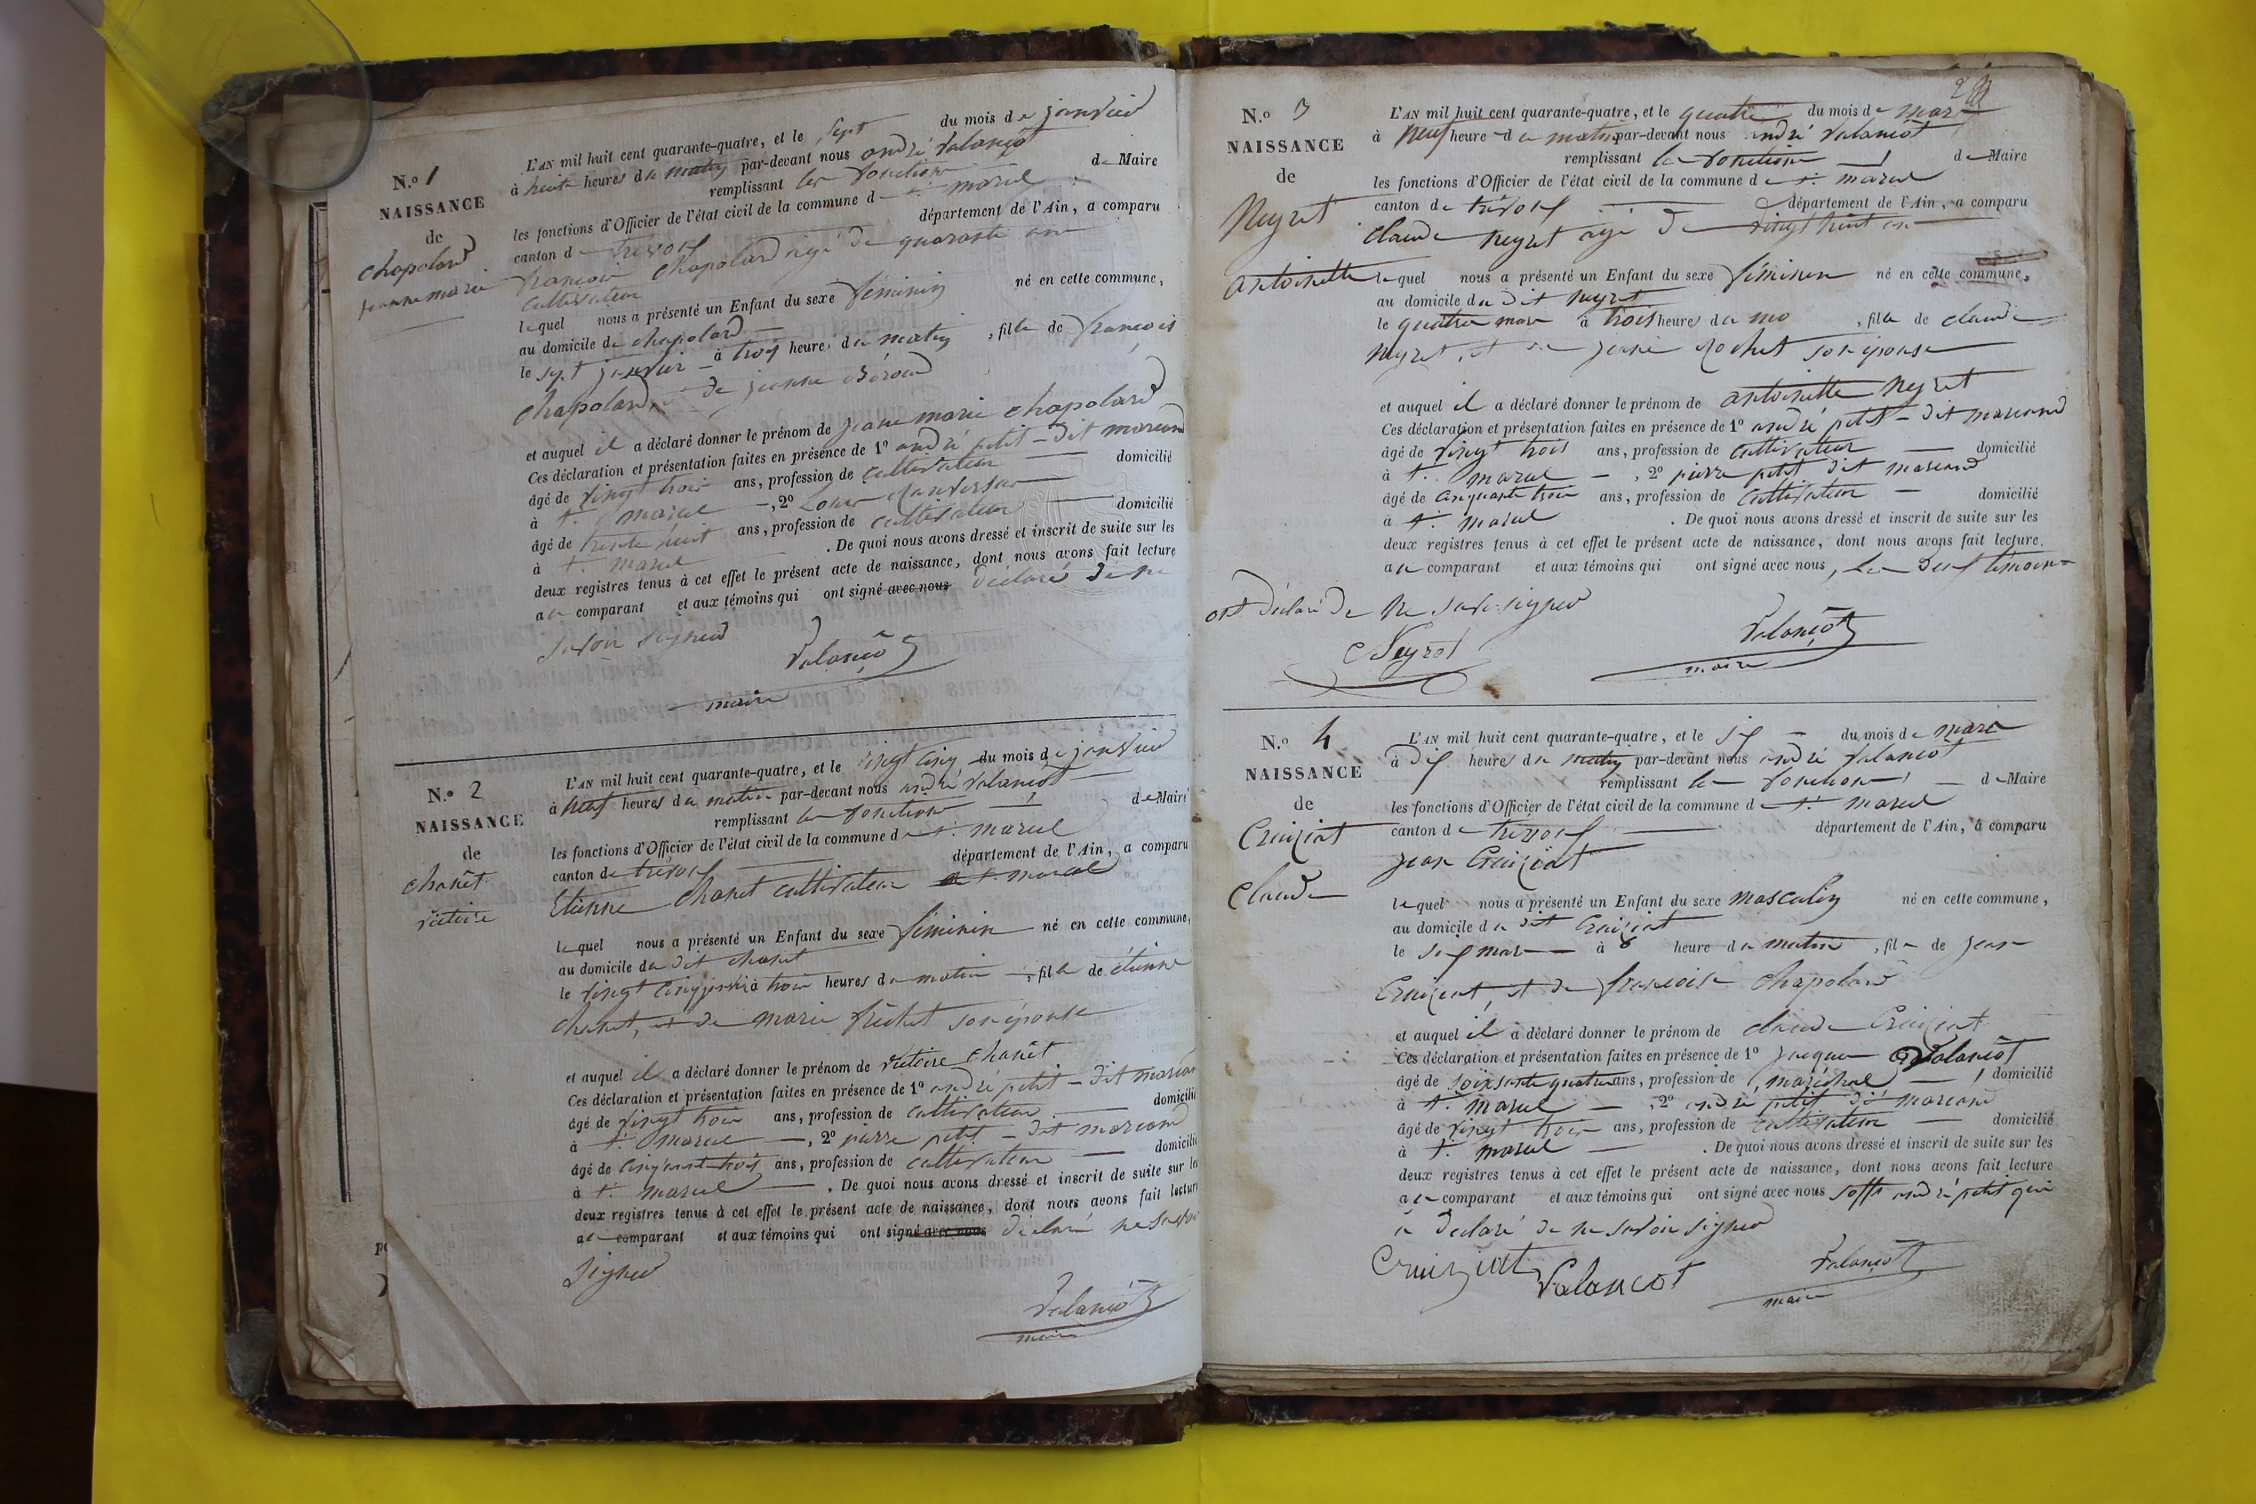 N.o 1
NAISSANCE
de
chapolard
jeanne marie
L'AN mil huit cent quarante-quatre, et le sept du mois de janvier
à huit heures du matin par-devant nous andré Valançot
remplissant les fonctions de Maire
les fonctions d'Officier de l'état civil de la commune de st. marcel
canton de trévoux département de l'Ain, a comparu
françois chapolard agé de quarante ans
cultivateur
lequel nous a présenté un Enfant du sexe féminin né en cette commune,
au domicile de chapolard
le sept janvier à trois heures du matin, fille de françois
chapolard, de jeanne
et auquel il a déclaré donner le prénom de jeanne marie chapolard
Ces déclaration et présentation faites en présence de 1o andré petit - dit marcand
âgé de vingt trois ans, profession de cultivateur domicilié
à st. marcel , 2o Louis
âgé de trente huit ans, profession de cultivateur domicilié
à st. marcel . De quoi nous avons dressé et inscrit de suite sur les
deux registres tenus à cet effet le présent acte de naissance, dont nous avons fait lecture
au comparant et aux témoins qui ont signé avec nous déclaré de ne
savoir signer
Valançot
maire
N.o 2
NAISSANCE
de
chanêt
victoire
L'AN mil huit cent quarante-quatre, et le vingt cinq du mois de janvier
à neuf heures du matin par-devant nous andré valançot
remplissant les fonctions de Maire
les fonctions d'Officier de l'état civil de la commune de st. marcel
canton de trévoux département de l'Ain, a comparu
Etienne chanet cultivateur a st. marcel
lequel nous a présenté un Enfant du sexe féminin né en cette commune,
au domicile du dit chanet
le vingt cinq à trois heures du matin, fille de étienne
chanet, et de marie fréchet son épouse
et auquel il a déclaré donner le prénom de victoire chanêt
Ces déclaration et présentation faites en présence de 1o andré petit - dit marcand
âgé de vingt trois ans, profession de cultivateur domicilié
à st. marcel , 2o pierre petit - dit marcand
âgé de cinquante trois ans, profession de cultivateur domicilié
à st. marcel . De quoi nous avons dressé et inscrit de suite sur les
deux registres tenus à cet effet le présent acte de naissance, dont nous avons fait lecture
au comparant et aux témoins qui ont signé avec nous déclaré ne savoir
signer
Valançot
maire
N.o 3
NAISSANCE
de
Neyret
antoinette
L'AN mil huit cent quarante-quatre, et le quatre du mois de mars
à neuf heure du matin par-devant nous andré valançot
remplissant les fonctions de Maire
les fonctions d'Officier de l'état civil de la commune de st. marcel
canton de trévoux département de l'Ain, a comparu
claude neyret agé de vingt huit ans
lequel nous a présenté un Enfant du sexe féminin né en cette commune,
au domicile du dit neyret
le quatre mars à trois heures du , fille de claude
neyret, et de jeanne Rochet son épouse
et auquel il a déclaré donner le prénom de antoinette neyret
Ces déclaration et présentation faites en présence de 1o andré petit - dit marcand
âgé de vingt trois ans, profession de cultivateur domicilié
à st. marcel , 2o pierre petit dit marcand
âgé de cinquante trois ans, profession de cultivateur domicilié
à st. marcel . De quoi nous avons dressé et inscrit de suite sur les
deux registres tenus à cet effet le présent acte de naissance, dont nous avons fait lecture
au comparant et aux témoins qui ont signé avec nous, les deux témoins
ont déclaré de ne savoir signer
C Neyret
Valançot
maire
N.o 4
NAISSANCE
de
Cruiziat
Claude
L'AN mil huit cent quarante-quatre, et le six du mois de mars
à dix heures du matin par-devant nous andré valancot
remplissant les fonctions de Maire
les fonctions d'Officier de l'état civil de la commune de st. marcel
canton de trévoux département de l'Ain, a comparu
jean Cruiziat
lequel nous a présenté un Enfant du sexe masculin né en cette commune,
au domicile du dit Cruiziat
le six mars à 6 heure du matin, fils de jean
Cruiziat, et de françoise chapolard
et auquel il a déclaré donner le prénom de claude Cruiziat
Ces déclaration et présentation faites en présence de 1o jacques Valancot
âgé de soixante quatre ans, profession de maréchal domicilié
à st. marcel , 2o andré petit dit marcand
âgé de vingt trois ans, profession de cultivateur domicilié
à st. marcel . De quoi nous avons dressé et inscrit de suite sur les
deux registres tenus à cet effet le présent acte de naissance, dont nous avons fait lecture
au comparant et aux témoins qui ont signé avec nous andré petit qui
a déclaré de ne savoir signer
Cruiziat Valancot
Valançot
maire